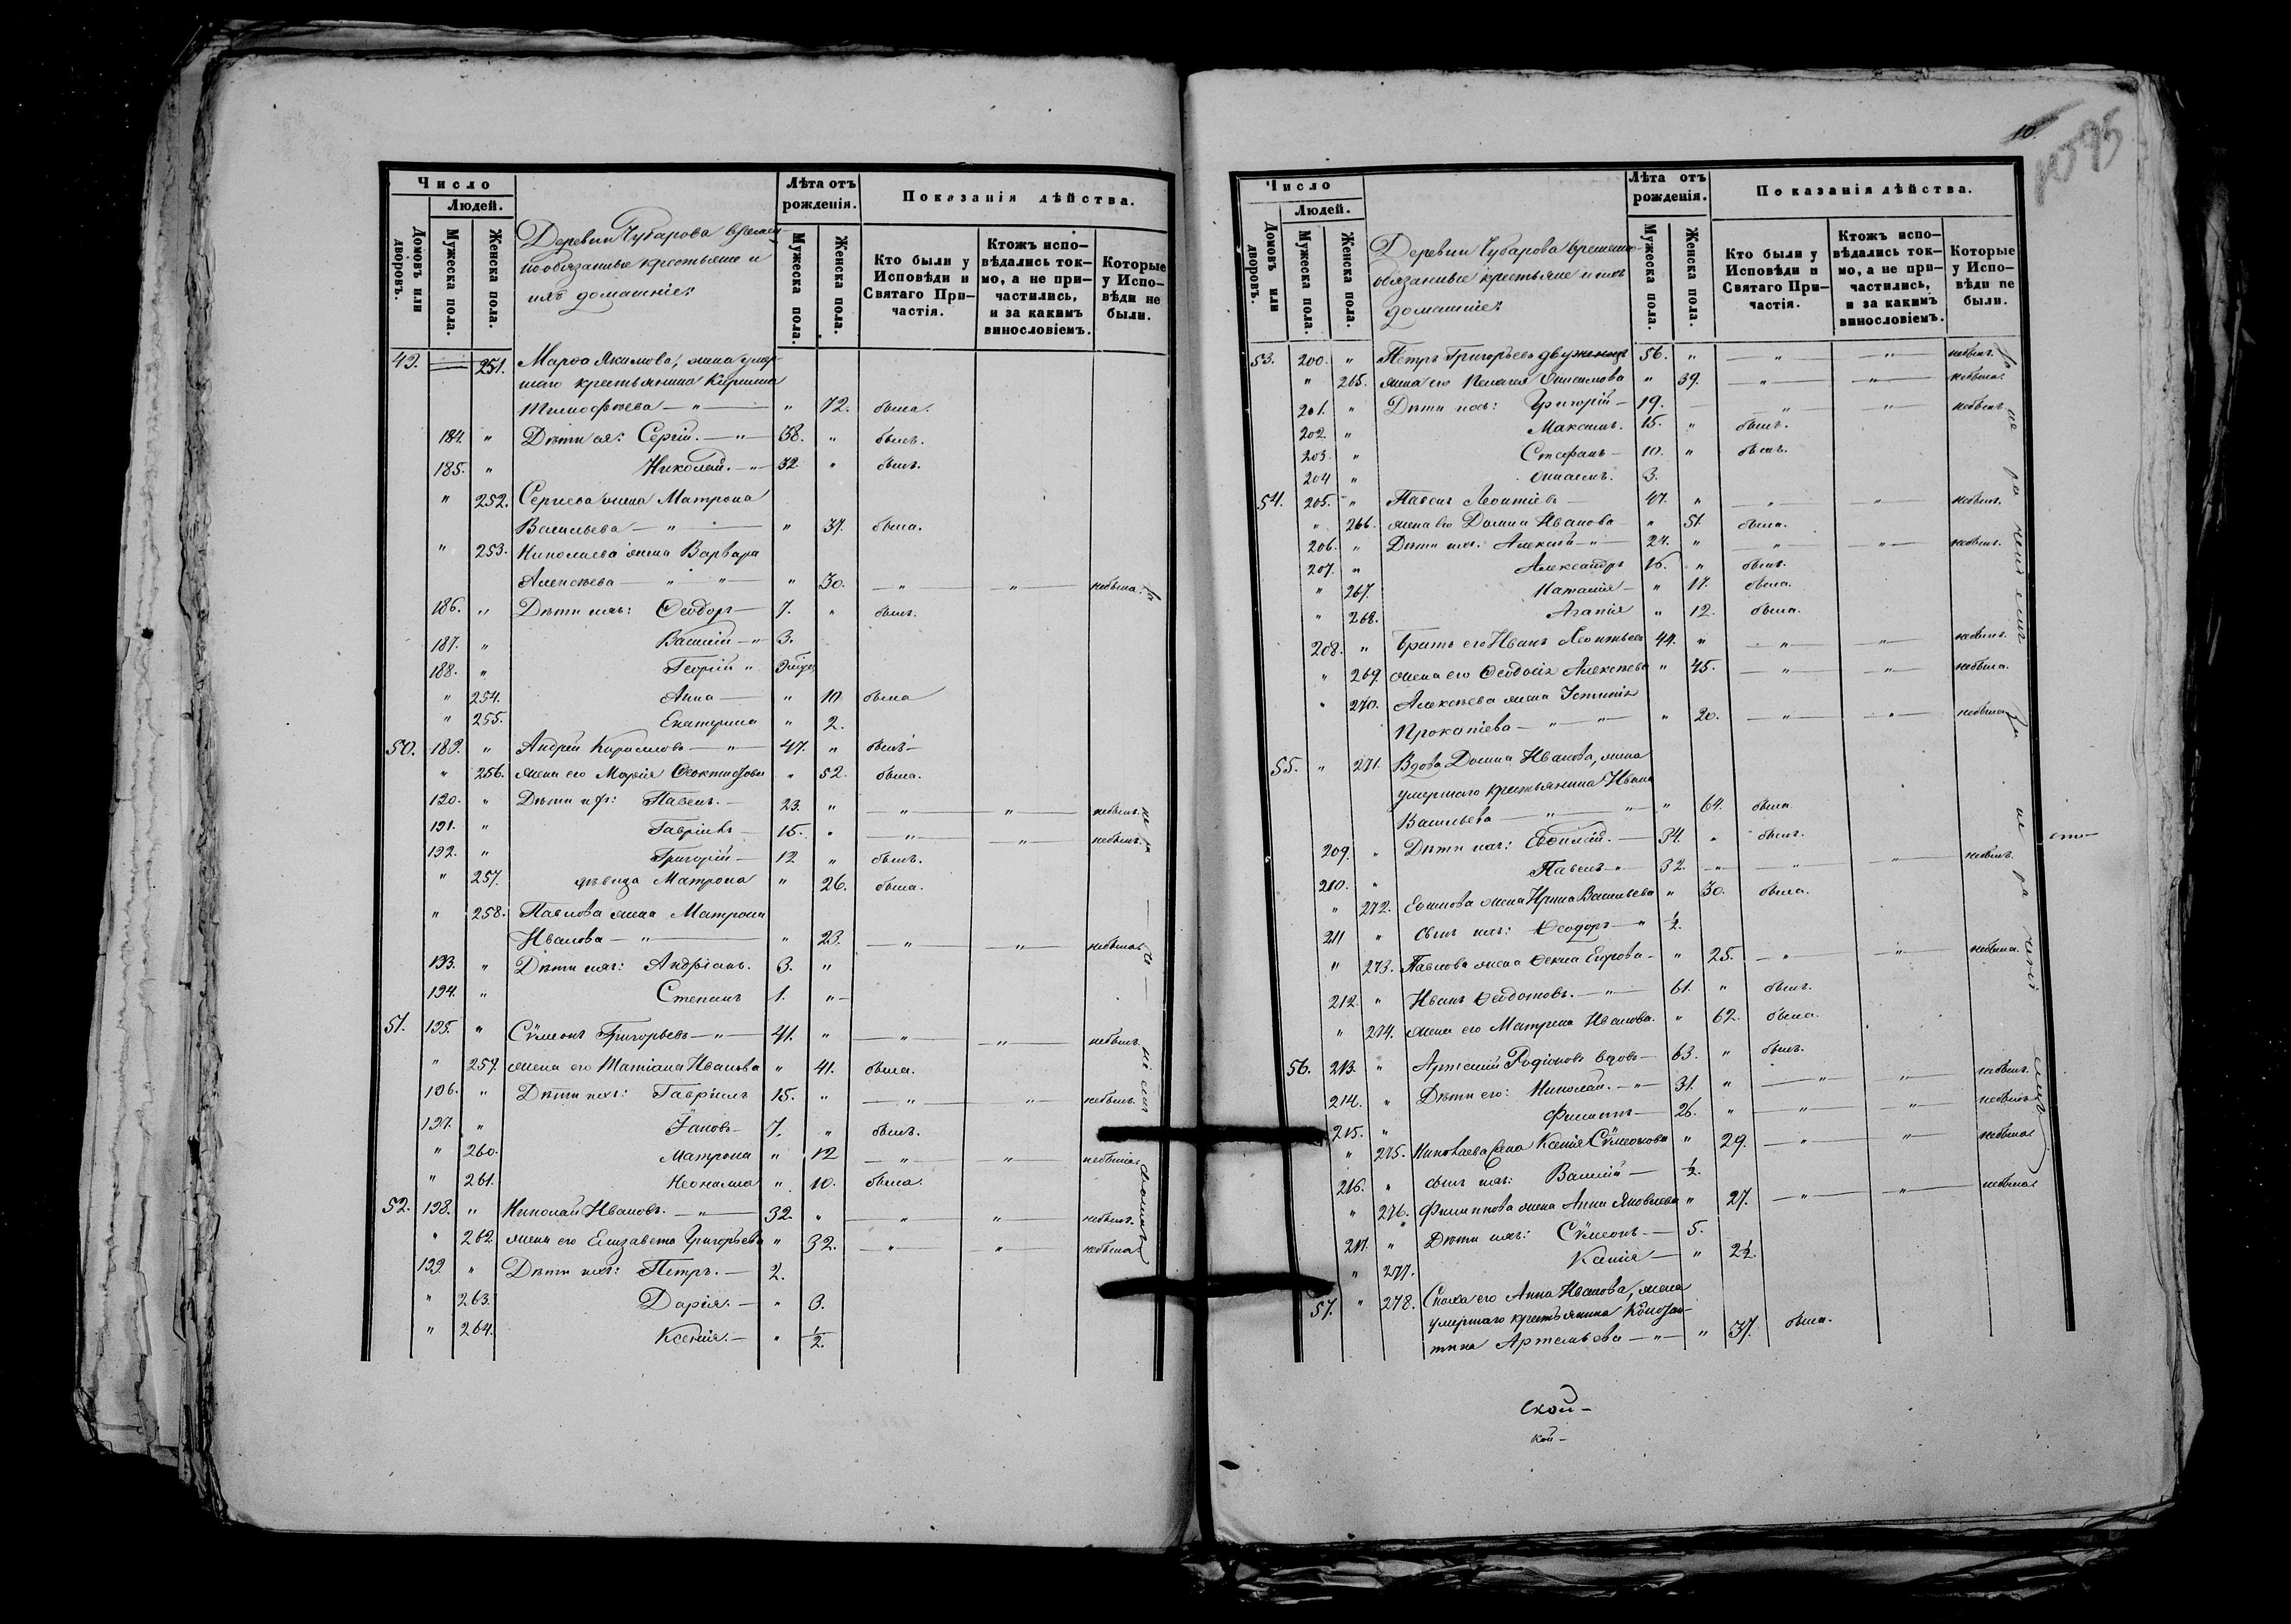 Число
Людей.
Домовъ или дворовъ.
Мужеска пола.
Женска пола.
Деревни Чубарова времен-
нообязанные крестьяне и
ихъ домашніе:
Лѣта отъ рожденія.
Мужеска пола.
Женска пола.
Показанія дѣйства.
Кто были у Исповѣди и Святаго Причастія.
Ктожъ исповѣдались токмо, а не причастились, и за какимъ винословіемъ.
Которые у Исповѣди не были.
49. 251. Марѳа Якимова, жена умер-
шаго крестьянина Кирилла
Тимофѣева — " — " 72. была.
184. " Дѣти ея: Сергій. — " — 38. " былъ.
185. " Николай. — " — 32. " былъ.
" 252. Сергѣева жена Матрона
Васильева — " — " 37. была.
" 253. Николаева жена Варвара
Алексѣева — " — " — " 30. — " — " — небыла.
186. " Дѣти ихъ: Ѳеодоръ — 7. " былъ.
187. " Василій — " 3.
188. " Георгій "
" 254. Анна — " 10 была
" 255. Екатерина " 2.
50. 189. " Андрей Кириловъ — " — 47. " былъ —
" 256. жена его Марія Ѳеоктистова " 52. была.
190. " Дѣти ихъ: Павелъ. — 23. " — " — " — небылъ.
191. " Гавріилъ — 15. " — " — " — небылъ.
192. " Григорій — 12 " былъ.
" 257. дѣвица Матрона " 26. была.
" 258. Павлова жена Матрона
Иванова — " — " 23. — " — " — небыла.
193. " Дѣти ихъ: Андріанъ. 3. "
194. " Степанъ 1. " —
51. 195. " Сѵмеонъ Григорьевъ — " — 41. " — " — " — небылъ.
" 259. жена его Татіана Иванова " 41. была.
196. " Дѣти ихъ: Гавріилъ 15. " — " — " — небылъ.
197. " Іаковъ — 7. " былъ.
" 260. Матрона " 12 — " — " — небыла.
" 261. Неонила " 10. была.
52. 198. " Николай Ивановъ. — " — 32. " — " — " — небылъ.
" 262. жена его Елизавета Григорьева " 32. — " — " — небыла.
199. " Дѣти ихъ: Петръ. — 2.
" 263. Дарія. — " 3.
" 264. Ксенія. — " ½.
10.
Число
Людей.
Домовъ или дворовъ.
Мужеска пола.
Женска пола.
Деревни Чубарова временно-
обязанные крестьяне и ихъ
домашніе:
Лѣта отъ рожденія.
Мужеска пола.
Женска пола.
Показанія дѣйства.
Кто были у Исповѣди и Святаго Причастія.
Ктожъ исповѣдались токмо, а не причастились, и за какимъ винословіемъ.
Которые у Исповѣди не были.
53. 200. " Петръ Григорьевъ двуженецъ 56. " — " — " — небылъ.
" 265. жена его Пелагея Онисимова " 39. — " — " — небыла.
201. " Дѣти ихъ: Григорій — 19. — " — " — небылъ
202. " Максимъ. 15. " былъ.
203. " Стефанъ — 10. " былъ.
204 " Онисимъ. 3.
54. 205. " Павелъ Леонтіевъ — 47. " — " — " — небылъ.
" 266. жена его Домна Иванова — " 51. была.
206. " Дѣти ихъ: Алексѣй — " — 24. " — " — " — небылъ.
207. " Александръ 16. " былъ.
" 267. Наталія — " 17. была.
" 268. Агапія " 12. была.
208. " Братъ его Иванъ Леонтьевъ 44. " — " — " — небылъ.
" 269. жена его Ѳеодосія Алексѣева " 45. — " — " — небыла.
" 270. Алексѣева жена Устинія
Прокопіева — " — " — " 20. — " — " — небыла
55. " 271. Вдова Домна Иванова, жена
умершаго крестьянина Ивана
Васильева — " — " — " 64. была
209. " Дѣти ихъ: Евфимій. — 34. " былъ.
210. " Павелъ — " 32. — " — " — " небылъ.
" 272. Евфимова жена Ирина Васильева " 30. была.
211 " сынъ ихъ: Ѳеодоръ — " ½.
" 273. Павлова жена Ѳекла Егорова — " 25. — " — " — небыла.
212. " Иванъ Ѳедотовъ. — " — 61. " былъ.
" 274. жена его Матрена Иванова. " 62. была.
56. 213. " Артемій Родіоновъ вдовъ — 63. " былъ.
214. " Дѣти его: Николай. — " — 31. " — " — " — небылъ.
215. " Филиппъ — 26. " — " — " — небылъ
" 275. Николаева жена Ксенія Сѵмеонова " 29. — " — " — небыла
216. " сынъ ихъ: Василій — ½.
" 276. Филиппова жена Анна Яковлева " 27. — " — " — небыла
217. " Дѣти ихъ: Сѵмеонъ — 5.
" 277. Ксенія — " 2½.
57. " 278. Сноха его Анна Иванова, жена
умершаго крестьянина Констан-
тина Артемьева — " — " 37. была.
Ской —
кой —